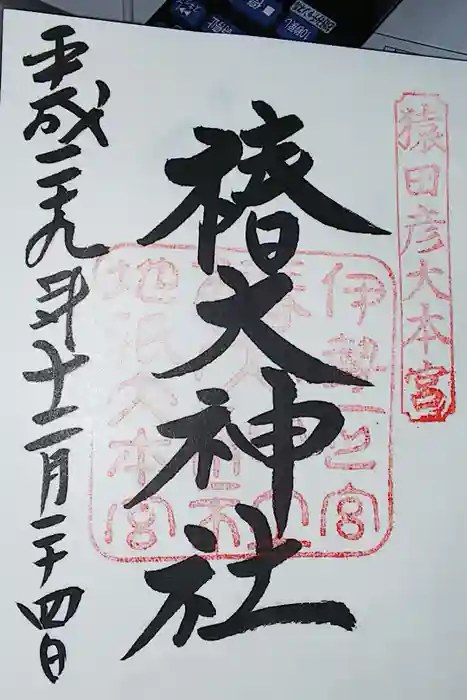 猿田彦大本宮
伊勢一之宮
地祇大本宮
椿大神社
平成二十九年十二月二十四日